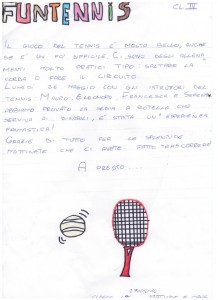 FUNTENNIS
CL. IV
IL GIOCO DEL TENNIS E' MOLTO BELLO, ANCHE
SE È UN PO' DIFFICILE. CI SONO DEGLI ALLENA_
MENTI MOLTO DIVERTENTI TIPO: SALTARE LA
CORDA O FARE IL CIRCUITO.
LUNEDI' 24 MAGGIO CON GLI ISTRUTTORI DEL
TENNIS: MAURO, ELEONORA, FRANCESCA E SERENA
ABBIAMO PROVATO LA SEDIA A ROTELLE CHE
SERVIVA AI DISABILI, È STATA UN'ESPERIENZA
FANTASTICA!
GRAZIE DI TUTTO PER LE SPLENDIDE
MATTINATE CHE CI AVETE FATTO TRASCORRERE
A PRESTO.....